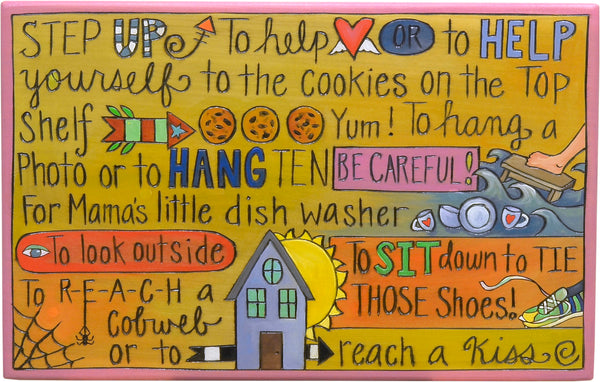 STEP UP To help OR to HELP
yourself to the cookies on the Top
Shelf Yum! To hang a
Photo or to HANG TEN BE CAREFUL!
For Mama's little dish washer
To look outside
To R-E-A-C-H a
Cobweb
or to
To SIT down to TIE
THOSE Shoes!
reach a Kiss